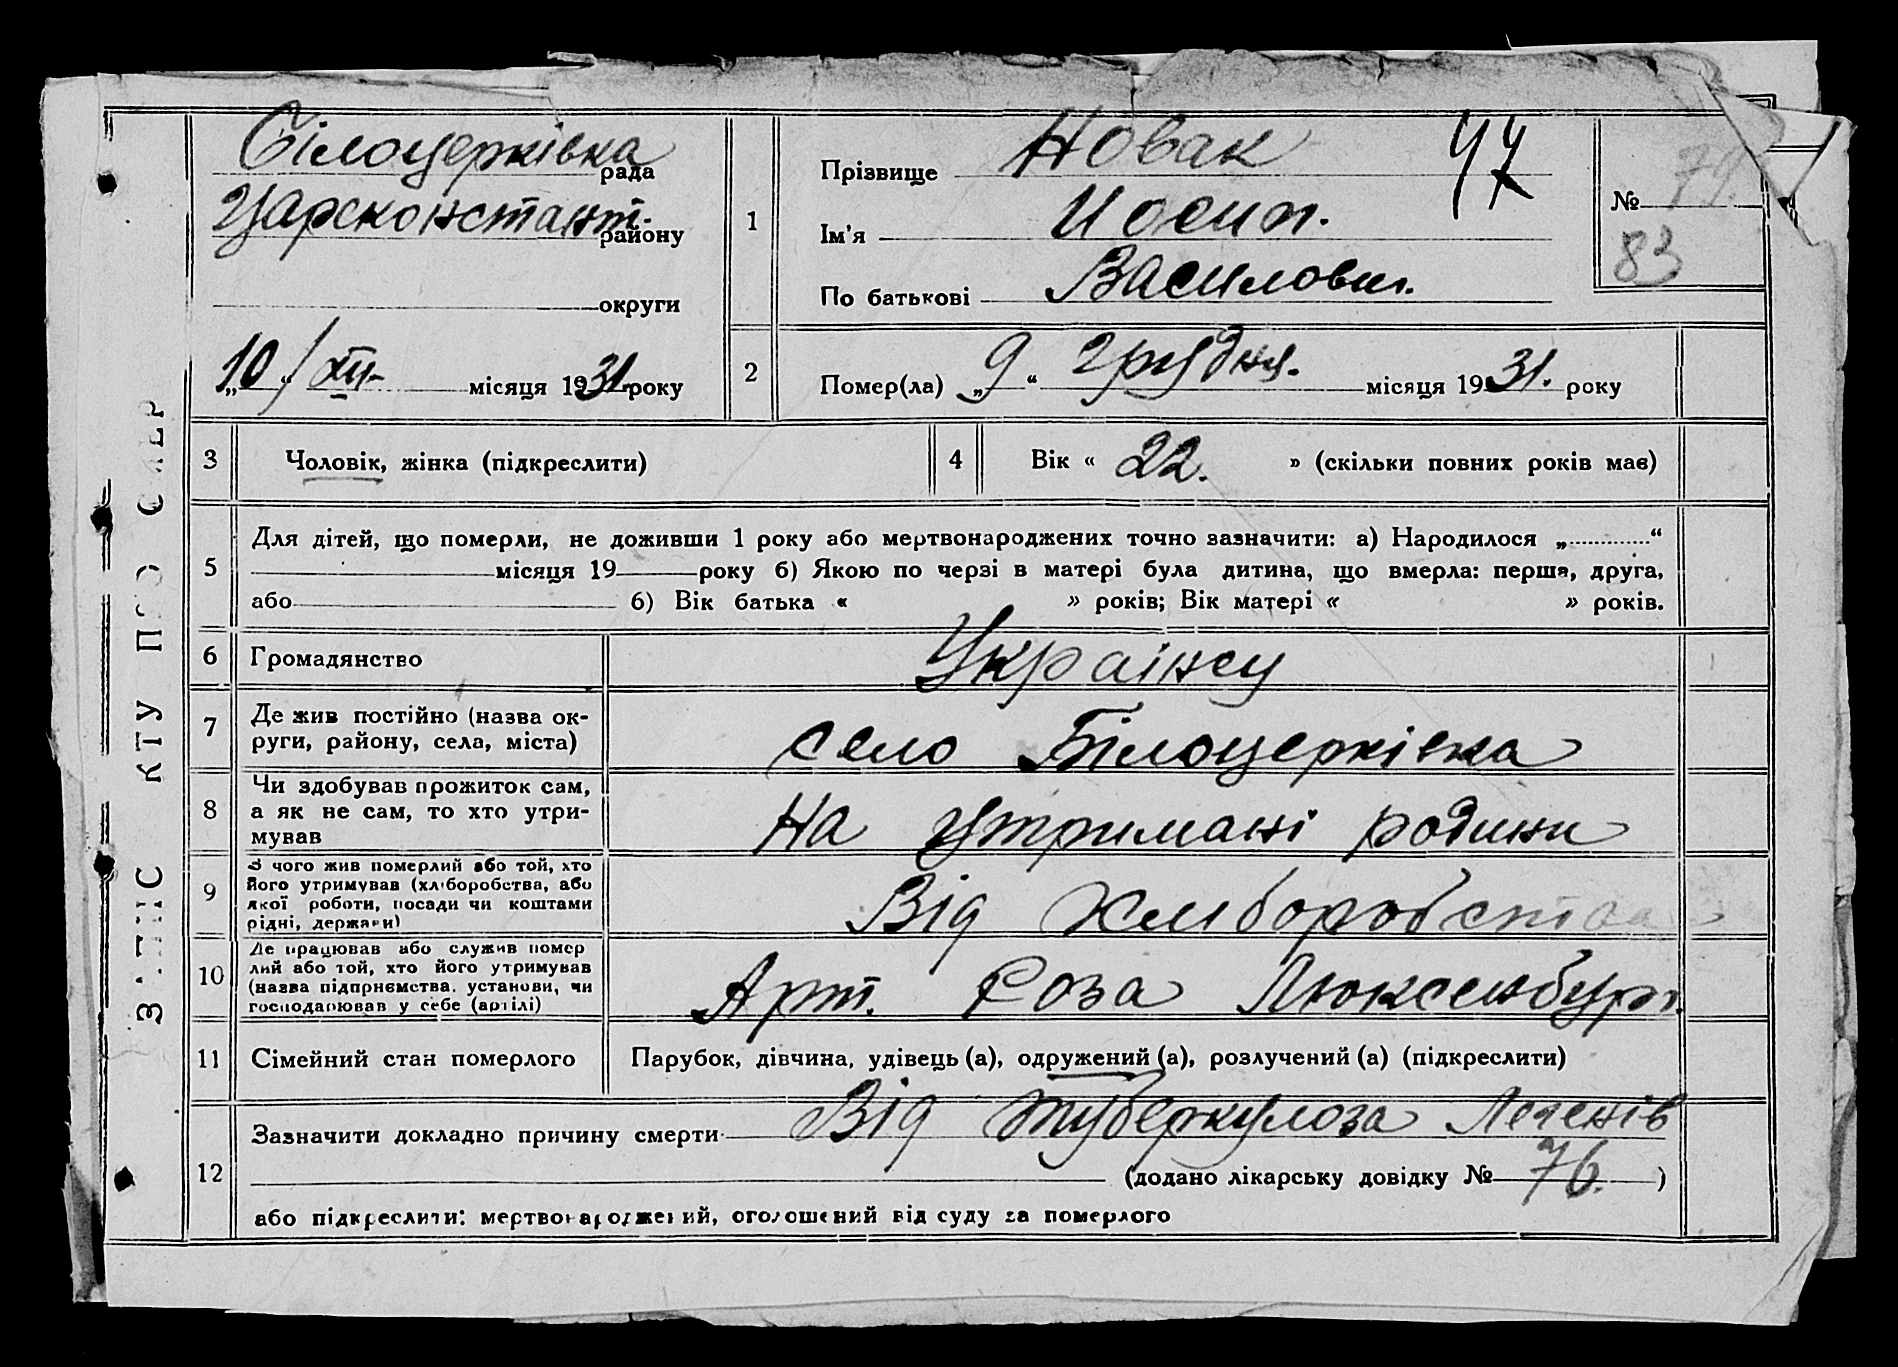 ЗАПИС АКТУ ПРО СМЕР
Білоцерківка
рада
Царсконстант.
району
округи
„10“/XII- місяця 1931 року
1
Прізвище Новак
47
Ім'я Иосип.
По батькові Василович.
№ 79.
83
2
Помер(ла) „9“ грудня. місяця 1931. року
3 Чоловік, жінка (підкреслити)
4 Вік « 22. » (скільки повних років має)
5
Для дітей, що померли, не доживши 1 року або мертвонароджених точно зазначити: а) Народилося „ “
місяця 19 року б) Якою по черзі в матері була дитина, що вмерла: перша, друга,
або б) Вік батька « » років; Вік матері « » років.
6 Громадянство Українсу
7
Де жив постійно (назва ок-
руги, району, села, міста)
село Білоцерківка
8
Чи здобував прожиток сам,
а як не сам, то хто утри-
мував
На утримані родини
9
З чого жив померлий або той, хто
його утримував (хліборобства, або
якої роботи, посади чи коштами
рідні, держави)
Від Хлиборобства
10
Де працював або служив помер
лий або той, хто його утримував
(назва підприємства, установи, чи
господарював у себе (артілі)
Арт. Роза Люксенбург.
11 Сімейний стан померлого Парубок, дівчина, удівець (а), одружений (а), розлучений (а) (підкреслити)
12
Зазначити докладно причину смерти Від туберкулоза Легенів
(додано лікарську довідку № 76. )
або підкреслити: мертвонароджений, оголошений від суду за померлого